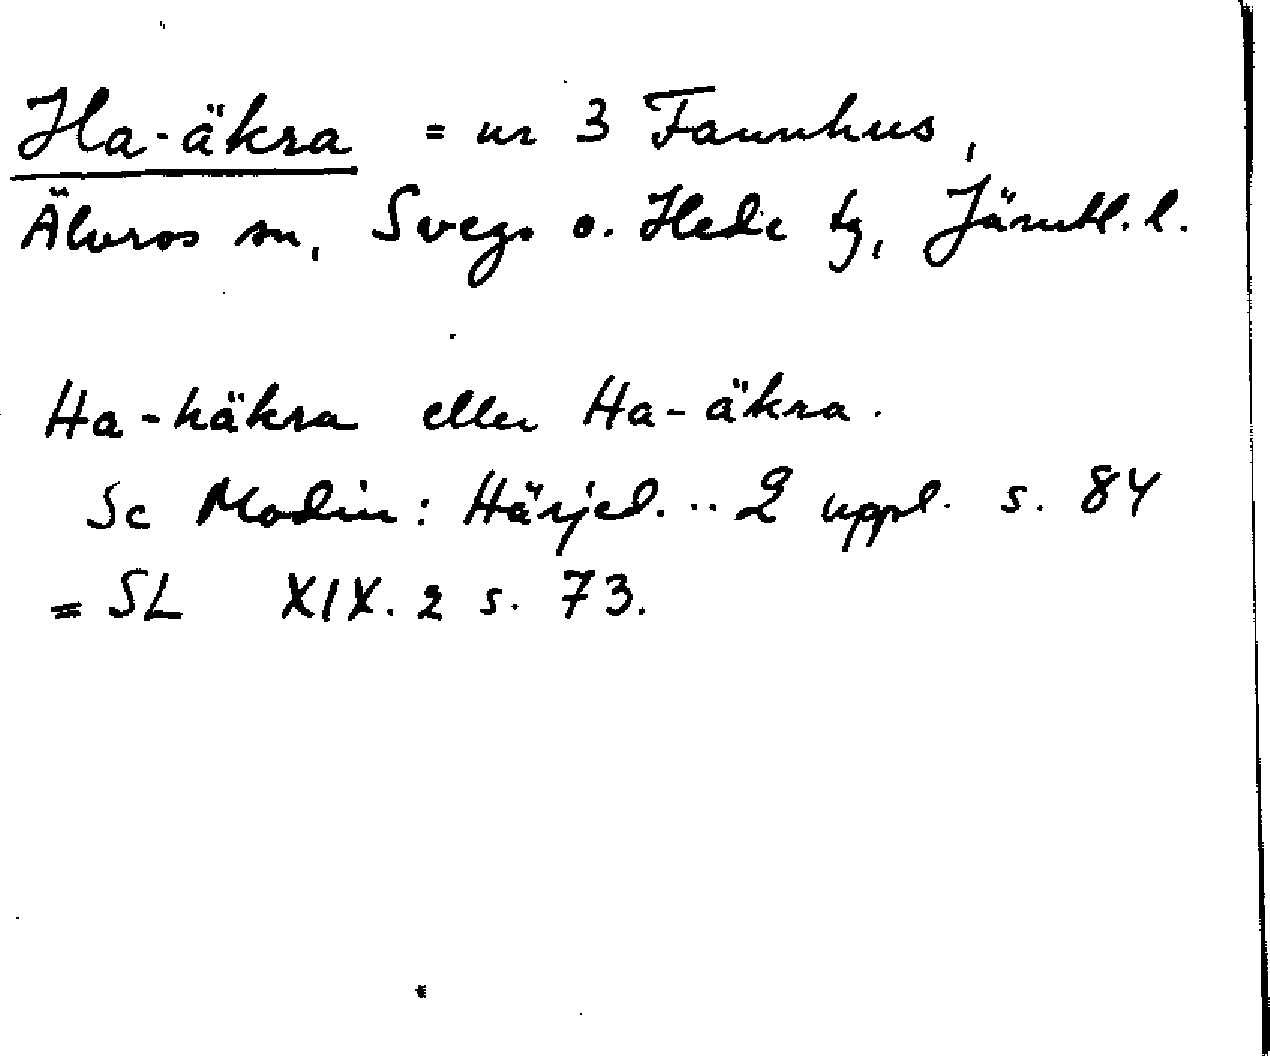 Ha-äkra = nr 3 Faunhus,
Älvros sn, Svegs o. Hede tg, Jämtl. l.
Ha-häkra eller Ha-äkra.
Se Modin: Härjed... 2 uppl. s. 84
= SL XIX. 2 s. 73.